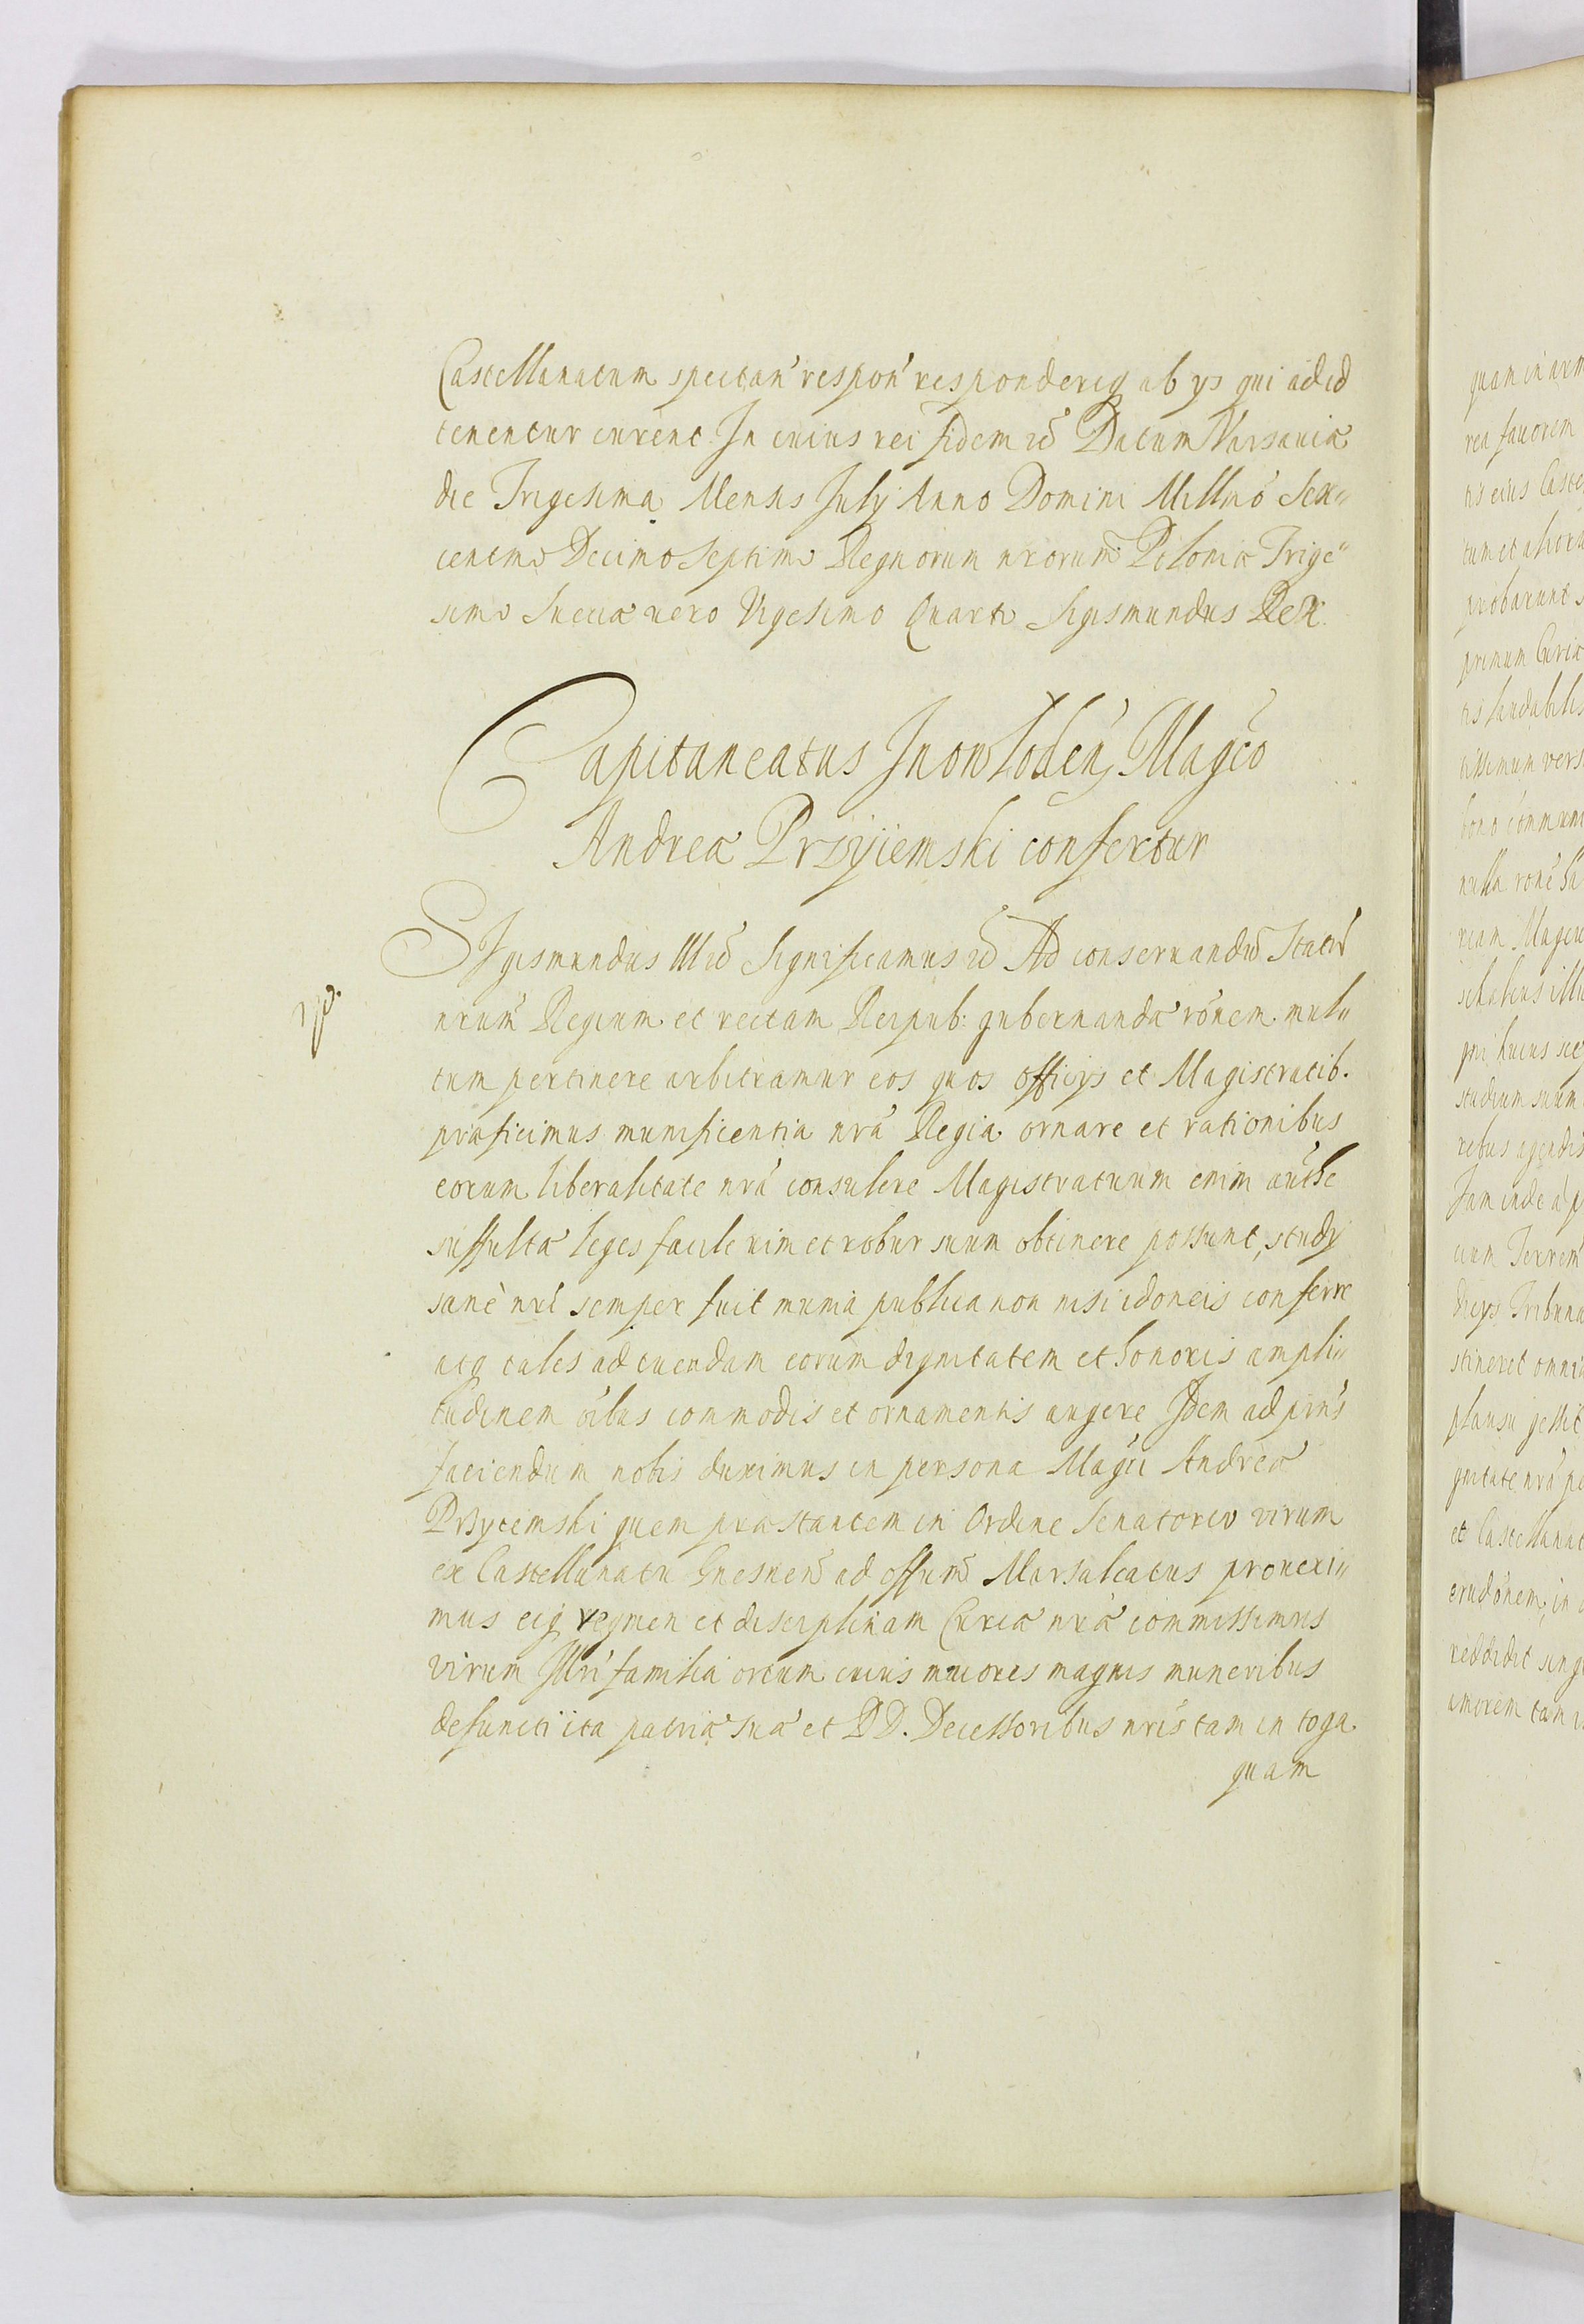 Castellanatum spectan' respon' responderiq ab ys qui ad id
tenentur curent. In cuius rei fidem &c̃ Datum Varsauiæ
die Trigesima Mensis July Anno Domini Millmo Sex„
centmo Decimo Septimo Regnorum nrorum Poloniæ Trige„
simo Sueciæ uero Vigesimo Quarto Sigismundus Rex
Capitaneatus Inowlodeñ Magco
Andreæ Przyiemski confertur
Sigismundus III &c̃ Significamus &c̃ Ad conseruandũ Statũ
nrum Regium et rectam Reipub: gubernandæ rõnem mul„
tum pertinere arbitramur eos quos officijs et Magistratib.
præficimus munificentia nrã Regia ornare et rationibus
eorum liberalitate nrã consulere Magistratuum enim autħe
suffultæ leges facile uim et robur suum obtinere possunt, study
sanè nrĩ semper fuit munia publica non nisi idoneis conferre
atq tales ad tuendam eorum dignitatem et honoris ampli„
tudinem oĩbus commodis et ornamentis augere Idem ad prñs
faciendum nobis duximus in persona Magci Andreæ
Przyiemski quem præstantem in Ordine Senatorio virum
ex Castellanatu Gnesneñ ad offum Marsalcatus prouexi„
mus eiq regimen et disciplinam Curiæ nræ commissimus
virum Illri familia ortum cuius maiores magnis muneribus
defuncti ita patriæ suæ et DD. Decessoribus nris tam in toga
quam
quam in arm
rea fauorem
tis eius Caste
tum et alioru
probarunt
primum Curiæ
tis laudabilis
tissimum vers
bono communi
nulla rone
riam
se habens illu
qui huius
studium suum
rebus agendis
Jam inde a p
cum Terrem
dicys Tribuna
stineret omni
plausu gessit
gnitate nrã
et Castellanat
erudonem, in
reddidit sing
amorem tam